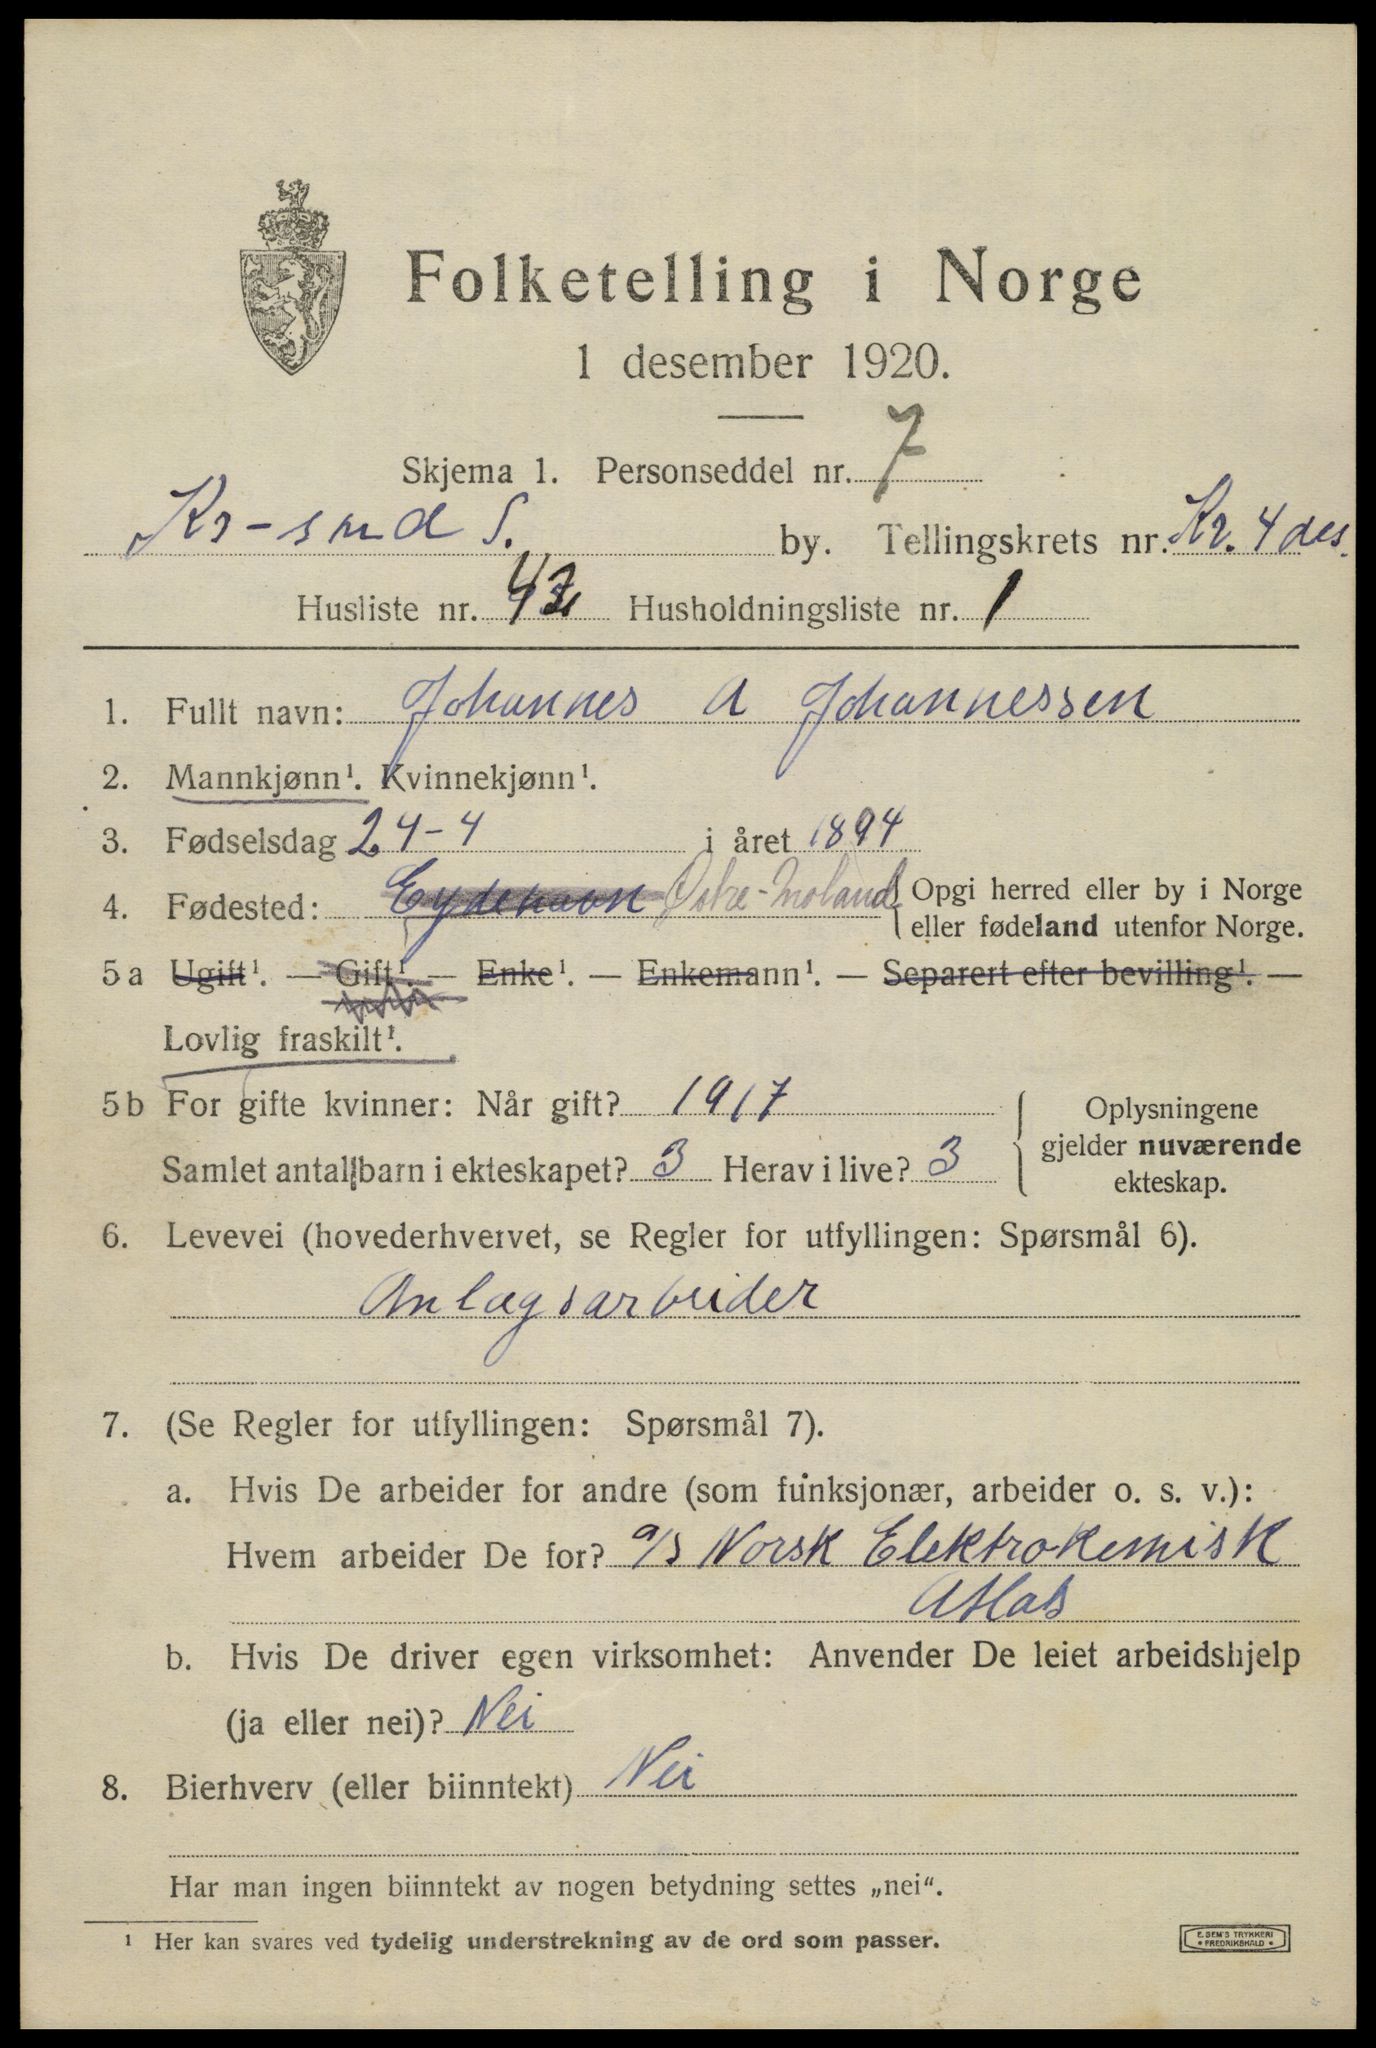 Folketelling i Norge
1 desember 1920.
Skjema 1. Personseddel nr. 7
Kr-sand S. by. Tellingskrets nr. Kr. 4 des.
Husliste nr. 42 Husholdningsliste nr. 1
1. Fullt navn: Johannes A Johannessen
2. Mannkjønn¹. Kvinnekjønn¹.
3. Fødselsdag 24-4 i året 1894
4. Fødested: Eydehavn Østre-Moland Opgi herred eller by i Norge
eller fødeland utenfor Norge.
5a Ugift¹. — Gift¹. — Enke¹. — Enkemann¹. — Separert efter bevilling¹. —
Lovlig fraskilt¹.
5b For gifte kvinner: Når gift? 1917
Samlet antall barn i ekteskapet? 3 Herav i live? 3
Oplysningene
gjelder nuværende
ekteskap.
6. Levevei (hovederhvervet, se Regler for utfyllingen: Spørsmål 6).
Anlægsarbeider
7. (Se Regler for utfyllingen: Spørsmål 7).
a. Hvis De arbeider for andre (som funksjonær, arbeider o. s. v.):
Hvem arbeider De for? a/s Norsk Elektrokemisk
b. Hvis De driver egen virksomhet: Anvender De leiet arbeidshjelp
(ja eller nei)? Nei
8. Bierhverv (eller biinntekt) Nei
Har man ingen biinntekt av nogen betydning settes „nei“.
¹ Her kan svares ved tydelig understrekning av de ord som passer.
E. SEM'S TRYKKERI
• FREDRIKSHALD •